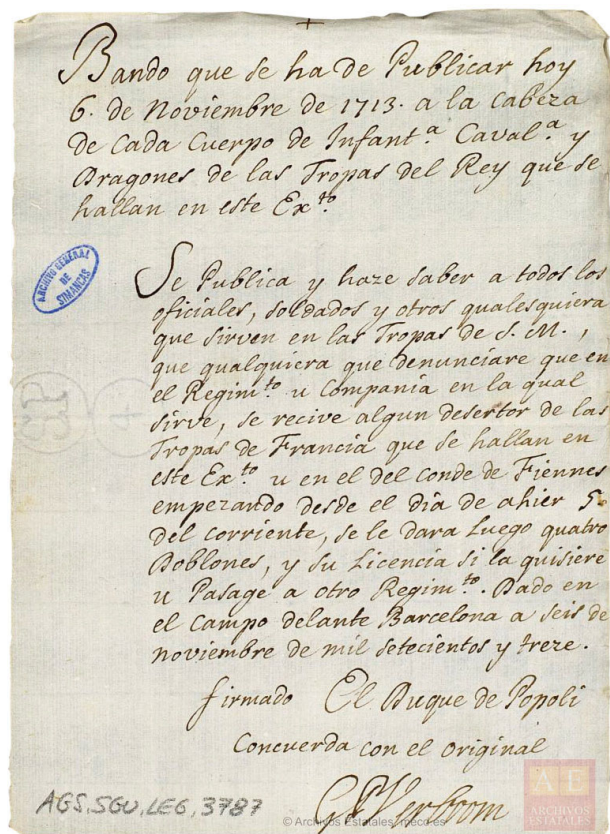 Bando que se ha de Publicar hoy
6. de Noviembre de 1713. a la Cabeza
de Cada Cuerpo de Infant.ª Caval.ª y
Dragones de las Tropas del Rey que se
hallan en este Ex.to
ARCHIVO GENERAL
DE
SIMANCAS
Se Publica y haze saber a todos los
oficiales, soldados y otros qualesquiera
que sirven en las Tropas de S. M.,
que qualquiera que denunciare que en
el Regim.to u Compania en la qual
sirve, se recive algun desertor de las
Tropas de Francia que se hallan en
este Ex.to u en el del Conde de Fiennes
empezando desde el dia de ahier 5
del corriente, se le dara Luego quatro
Doblones, y su Licencia si la quisiere
u Pasage a otro Regim.to. Dado en
el Campo delante Barcelona a seis de
noviembre de mil setecientos y treze.
firmado El Duque de Popoli
Concuerda con el original
Verboom
AGS, SGU, LEG, 3787
© Archivos Estatales, mecd.es
AE
ARCHIVOS
ESTATALES